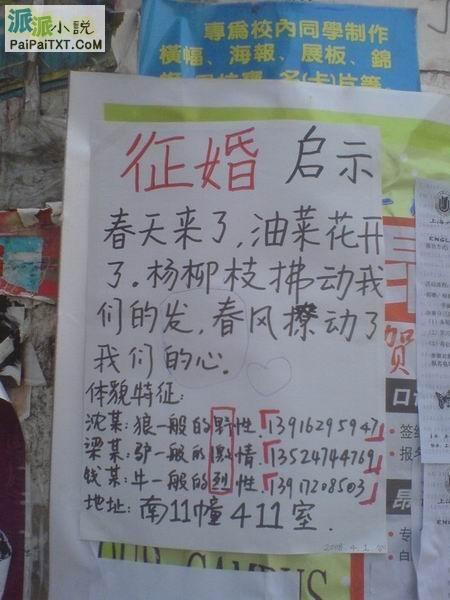 派派小説
PaiPaiTXT.com
專為校內同學制作
橫幅、海報、展板、錦
名(卡)片等
征婚 启示
春天来了,油菜花开
了.杨柳枝拂动我
们的发,春风撩动了
我们的心.
体貌特征:
沈某:狼一般的野性.「13916295947」
梁某:驴一般的激情.「13524744769」
钱某:牛一般的烈性.「13917208503」
地址:南11幢411室.
2008.4.1
贺
OUR CAMPUS